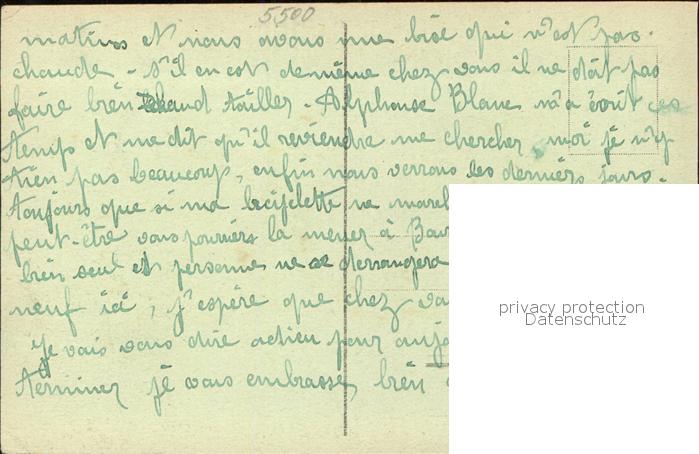 5,500
matins et nous avons une bise qui n'est pas
chaude - s'il en est de même chez vous il ne doit pas
faire bien chaud tailler - Alphonse Blanc m'a écrit ces
temps et me dit qu'il reviendra me chercher moi je n'y
tien pas beaucoup, enfin nous verrons les derniers jours.
Toujours que si ma biciclette ne
peut-être vous pourriers la mener à
bien seul et personne ne se derrangera
neuf ici, j'espère que chez
Je vais vous dire adieu pour
terminer je vous embrasse, bien
privacy protection
Datenschutz